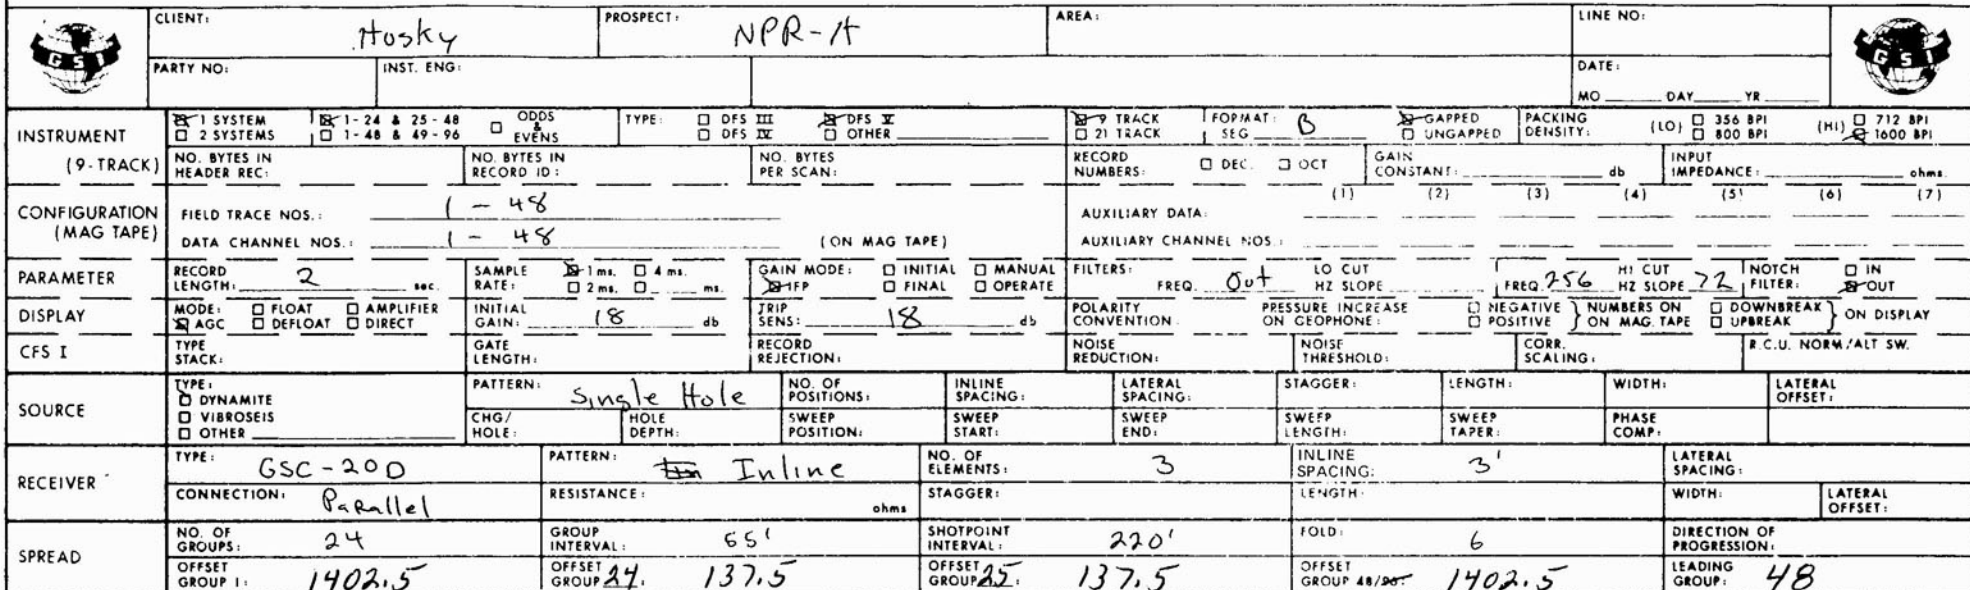 CLIENT: Husky PROSPECT: NPR-A AREA: LINE NO:
GSI GSI
PARTY NO: INST. ENG: DATE:
MO DAY YR
INSTRUMENT (9-TRACK)
☒ 1 SYSTEM ☒ 1-24 & 25-48 ☐ ODDS & EVENS TYPE: ☐ DFS III ☒ DFS V ☒ 9 TRACK FORMAT: SEG B ☒ GAPPED PACKING DENSITY: (LO) ☐ 356 BPI (HI) ☐ 712 BPI
☐ 2 SYSTEMS ☐ 1-48 & 49-96 ☐ DFS IV ☐ OTHER ☐ 21 TRACK ☐ UNGAPPED ☐ 800 BPI ☒ 1600 BPI
NO. BYTES IN HEADER REC: NO. BYTES IN RECORD ID: NO. BYTES PER SCAN: RECORD NUMBERS: ☐ DEC. ☐ OCT GAIN CONSTANT: db INPUT IMPEDANCE: ohms.
CONFIGURATION (MAG TAPE)
(1) (2) (3) (4) (5) (6) (7)
FIELD TRACE NOS.: 1 - 48 AUXILIARY DATA:
DATA CHANNEL NOS.: 1 - 48 (ON MAG TAPE) AUXILIARY CHANNEL NOS.:
PARAMETER
RECORD LENGTH: 2 sec. SAMPLE RATE: ☒ 1 ms. ☐ 4 ms. ☐ 2 ms. ☐ ms. GAIN MODE: ☐ INITIAL ☐ MANUAL ☒ IFP ☐ FINAL ☐ OPERATE FILTERS: FREQ. Out LO CUT HZ SLOPE FREQ. 256 HI CUT HZ SLOPE 72 NOTCH FILTER: ☐ IN ☒ OUT
DISPLAY
MODE: ☐ FLOAT ☐ AMPLIFIER ☒ AGC ☐ DEFLOAT ☐ DIRECT INITIAL GAIN: 18 db TRIP SENS: 18 db POLARITY CONVENTION PRESSURE INCREASE ON GEOPHONE: ☐ NEGATIVE ☐ POSITIVE } NUMBERS ON ON MAG. TAPE ☐ DOWNBREAK ☐ UPBREAK } ON DISPLAY
CFS I TYPE STACK: GATE LENGTH: RECORD REJECTION: NOISE REDUCTION: NOISE THRESHOLD: CORR. SCALING: R.C.U. NORM/ALT SW.
SOURCE
TYPE: ☒ DYNAMITE ☐ VIBROSEIS ☐ OTHER PATTERN: Single Hole NO. OF POSITIONS: INLINE SPACING: LATERAL SPACING: STAGGER: LENGTH: WIDTH: LATERAL OFFSET:
CHG/HOLE: HOLE DEPTH: SWEEP POSITION: SWEEP START: SWEEP END: SWEEP LENGTH: SWEEP TAPER: PHASE COMP:
RECEIVER
TYPE: GSC-20D PATTERN: Inline NO. OF ELEMENTS: 3 INLINE SPACING: 3' LATERAL SPACING:
CONNECTION: Parallel RESISTANCE: ohms STAGGER: LENGTH: WIDTH: LATERAL OFFSET:
SPREAD
NO. OF GROUPS: 24 GROUP INTERVAL: 55' SHOTPOINT INTERVAL: 220' FOLD: 6 DIRECTION OF PROGRESSION:
OFFSET GROUP 1: 1402.5 OFFSET GROUP 24: 137.5 OFFSET GROUP 25: 137.5 OFFSET GROUP 48/96: 1402.5 LEADING GROUP: 48